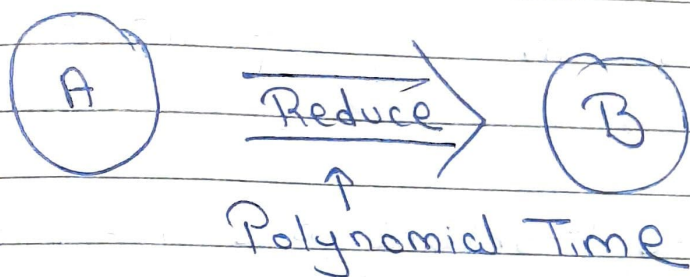 A Reduce B
Polynomial Time